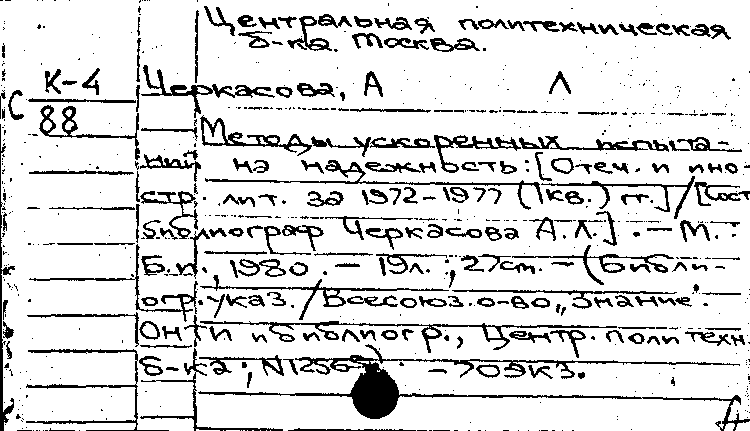 Центральная политехническая
б-ка. Москва.
К-4 Черкасова, А Л
С 88
Методы ускоренных испыта-
ний на надежность: [Отеч. и ино-
стр. лит. за 1972-1977 (1кв.) гг.] / [Сост
библиограф Черкасова А.Л.]. - М.:
Б.и., 1980. - 19л.; 27см. - (Библи-
огр. указ. / Всесоюз. о-во „Знание".
ОНТИ и библиогр., Центр. политехн
б-ка; N1256). - 70экз.